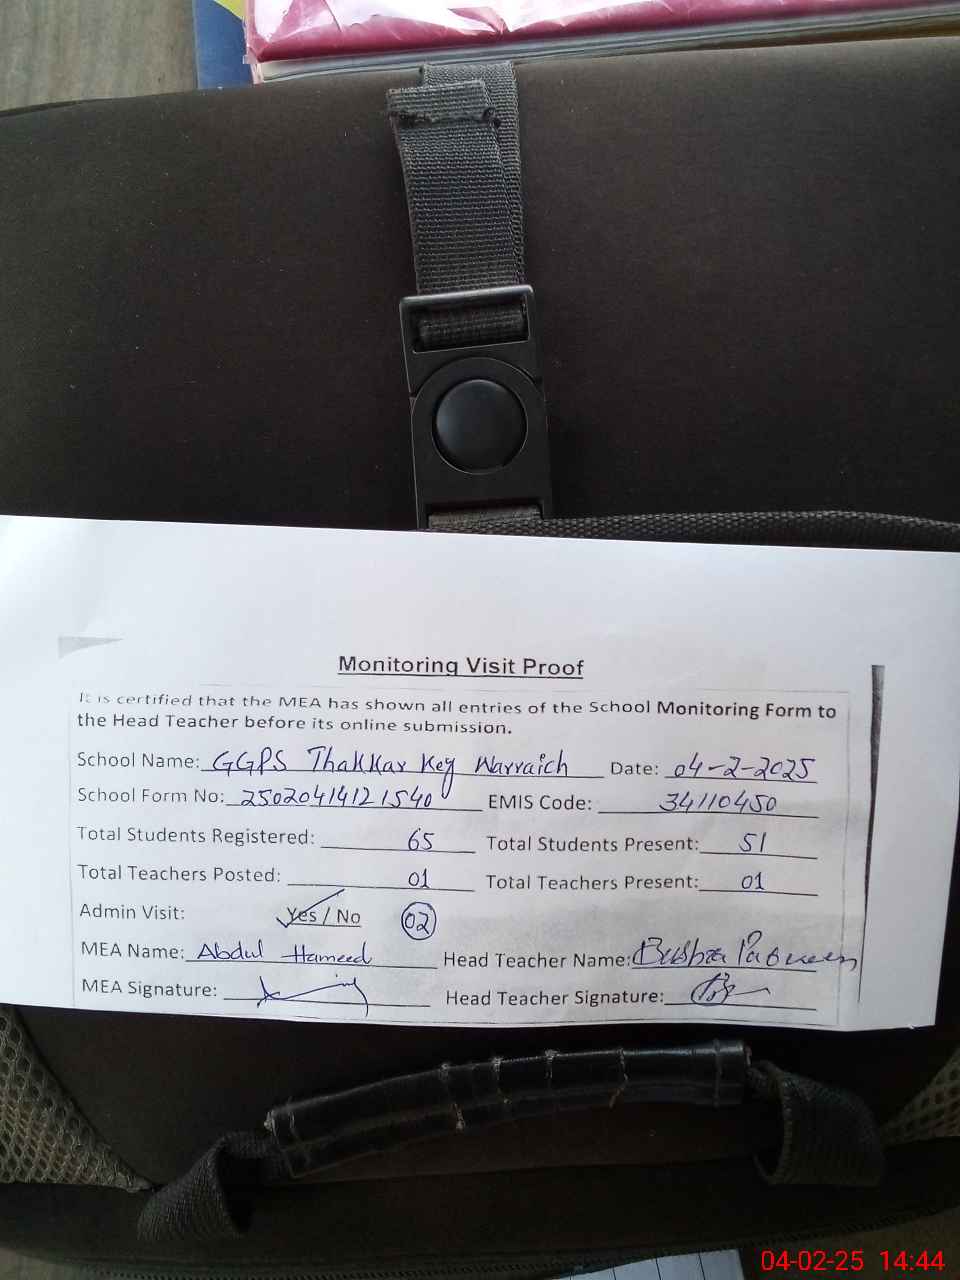 Monitoring Visit Proof
It is certified that the MEA has shown all entries of the School Monitoring Form to
the Head Teacher before its online submission.
School Name: GGPS Thakkar Key Warraich Date: 04-2-2025
School Form No: 25020414121540 EMIS Code: 34110450
Total Students Registered: 65 Total Students Present: 51
Total Teachers Posted: 01 Total Teachers Present: 01
Admin Visit: Yes / No 02
MEA Name: Abdul Hameed Head Teacher Name: Bushra Parveen
MEA Signature: Head Teacher Signature:
04-02-25 14:44